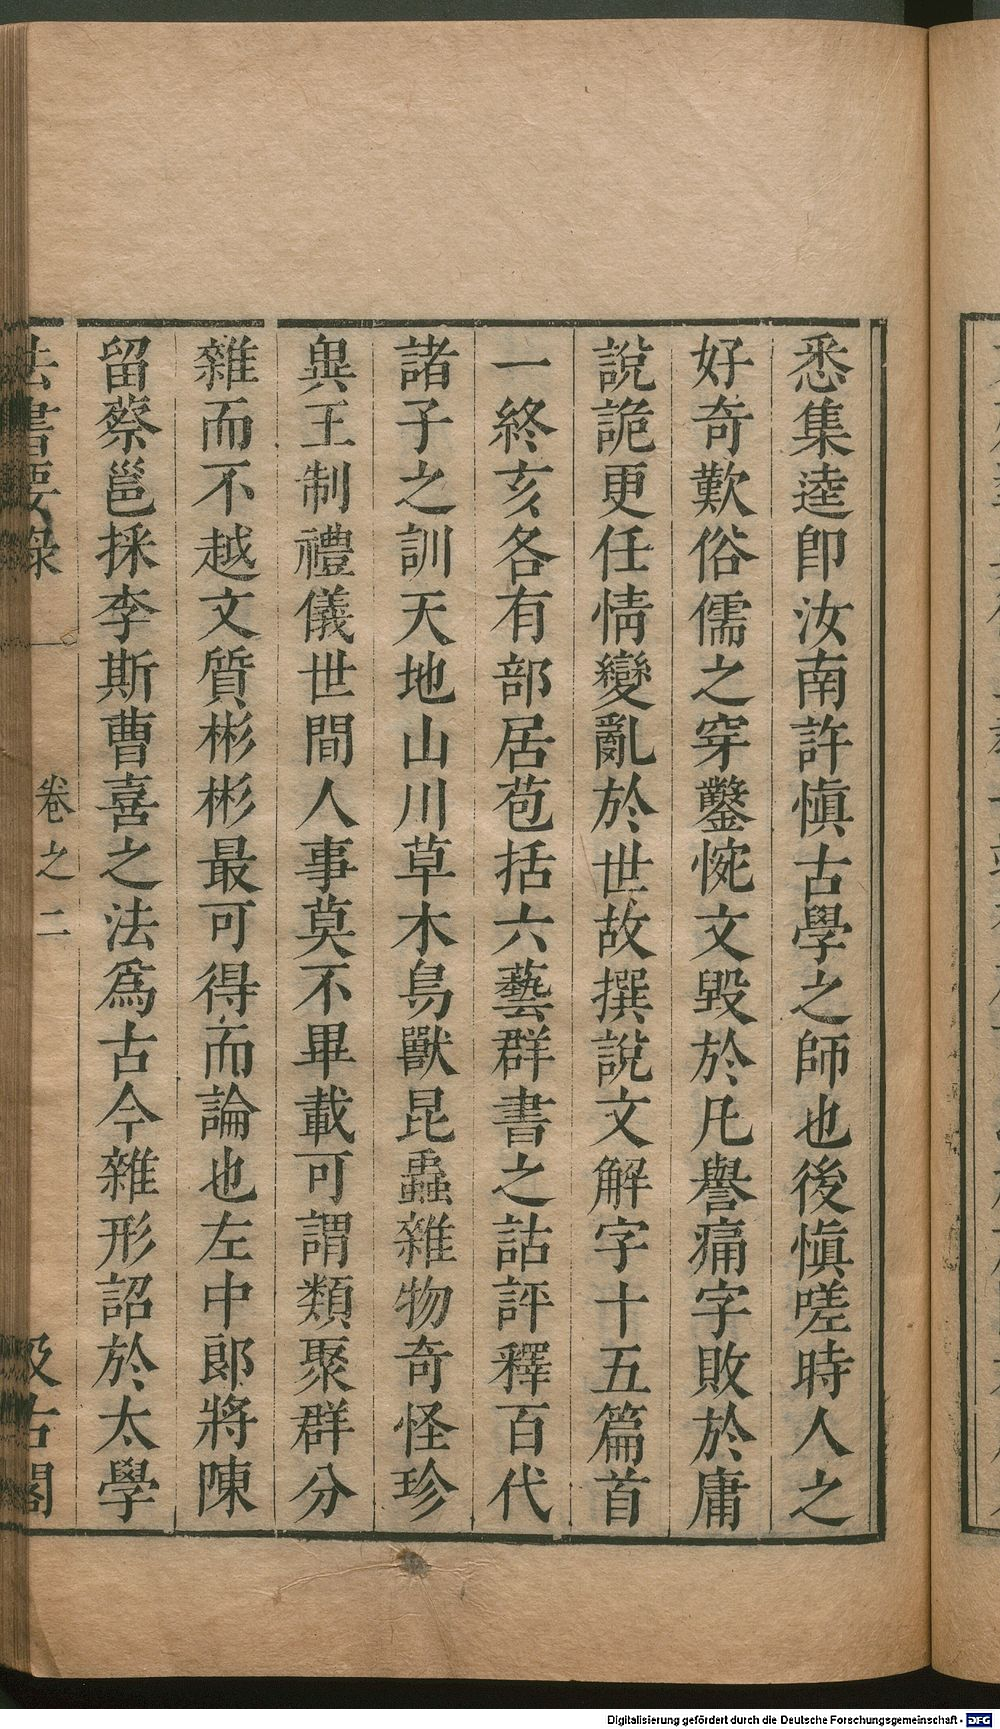 悉集逵卽汝南許愼古學之師也後愼嗟時人之
好奇歎俗儒之穿鑿惋文毀於凡譽痛字敗於庸
說詭更任情變亂於世故撰說文解字十五篇首
一終亥各有部居苞括六藝群書之詁評釋百代
諸子之訓天地山川草木鳥獸昆蟲雜物奇怪珍
異王制禮儀世間人事莫不畢載可謂類聚群分
雜而不越文質彬彬最可得而論也左中郎將陳
留蔡邕採李斯曹喜之法爲古今雜形詔於太學
法書要錄 卷之二 汲古閣
Digitalisierung gefördert durch die Deutsche Forschungsgemeinschaft - DFG